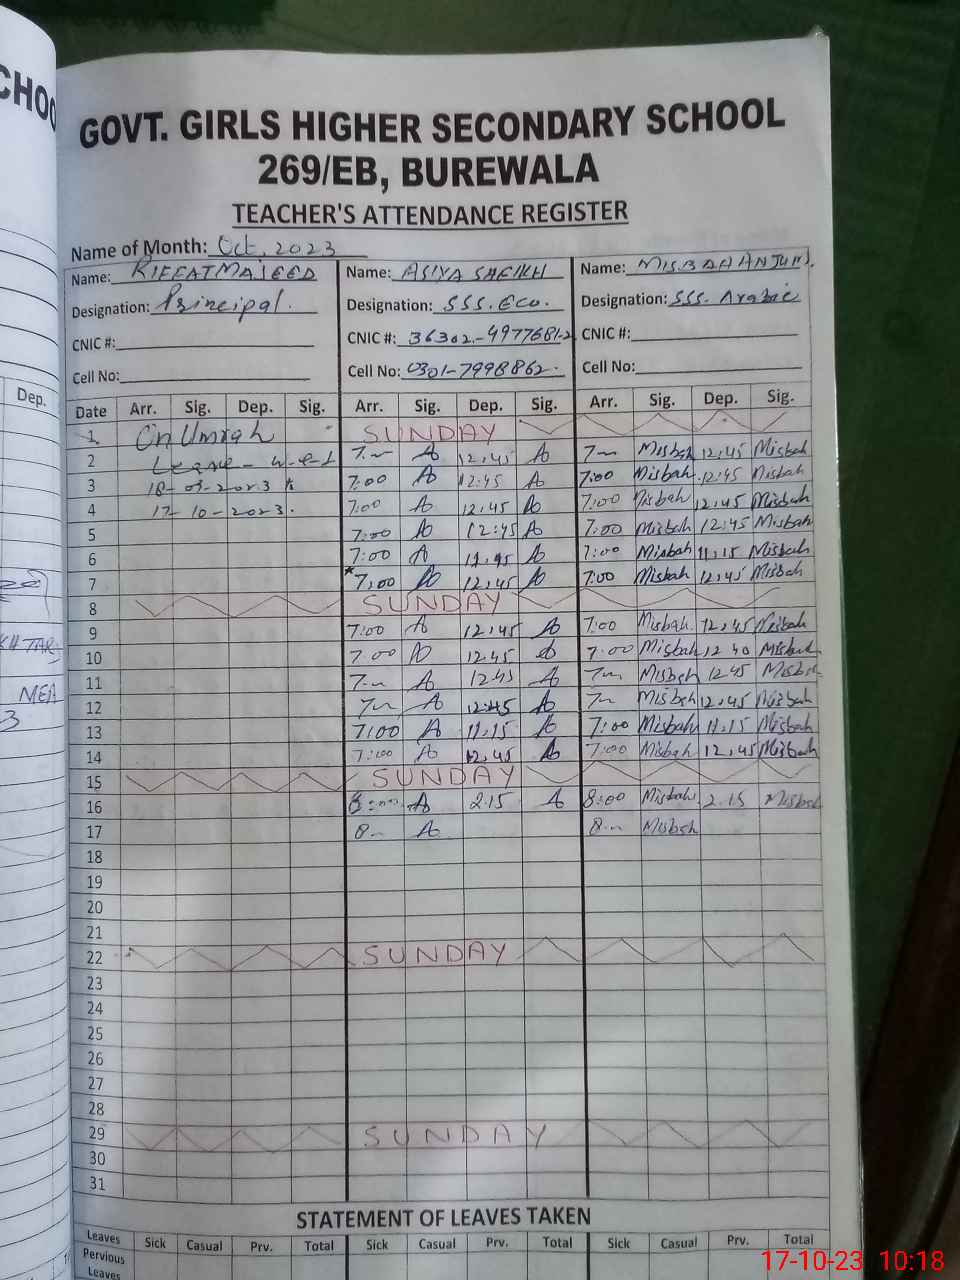 CHOO
GOVT. GIRLS HIGHER SECONDARY SCHOOL
269/EB, BUREWALA
TEACHER'S ATTENDANCE REGISTER
Name of Month: Oct, 2023
Name: RIFFAT MAJEED Name: ASIYA SHEIKH Name: MISBAH ANJUM.
Designation: Principal. Designation: SSS. Eco. Designation: SSS. Arabic
CNIC #: CNIC #: 36302-4977681-2 CNIC #:
Cell No: Cell No: 0301-7998862. Cell No:
Dep.
Date Arr. Sig. Dep. Sig. Arr. Sig. Dep. Sig. Arr. Sig. Dep. Sig.
1 On Umrah SUNDAY
2 Leave w.e.f 7.— A 12,45 A 7— Misbah 12,45 Misbah
3 18-09-2023 to 7:00 A 12:45 A 7:00 Misbah 12:45 Misbah
4 17-10-2023. 7:00 A 12,45 A 7:00 Misbah 12,45 Misbah
5 7:00 A 12:45 A 7:00 Misbah 12:45 Misbah
6 7:00 A A 7:00 Misbah 11,15 Misbah
7 7:00 A 12,45 A 7:00 Misbah 12,45 Misbah
8 SUNDAY
9 7:00 A 12,45 A 7:00 Misbah. 12,45 Misbah
10 7:00 A 12.45 A 7:00 Misbah 12 40 Misbah
11 7— A 12.45 A 7— Misbah 12 45 Misbah
12 7— A 12:45 A 7— Misbah 12,45 Misbah
13 7:00 A 11,15 A 7:00 Misbah 11,15 Misbah
14 7:00 A 12,45 A 7:00 Misbah 12,45 Misbah
15 SUNDAY
16 8:00 A 2.15 A 8:00 Misbah 2.15 Misbah
17 8.— A 8.— Misbah
18
19
20
21
22 SUNDAY
23
24
25
26
27
28
29 SUNDAY
30
31
STATEMENT OF LEAVES TAKEN
Leaves Sick Casual Prv. Total Sick Casual Prv. Total Sick Casual Prv. Total
Pervious
Leaves
17-10-23 10:18